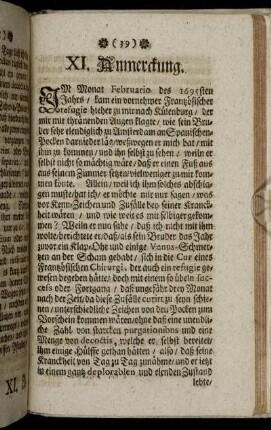 (39)
XI. Anmerckung.
IM Monat Februario des 1695sten
Jahrs / kam ein vornehmer Frantzösischer
Refugie hieher zu mir nach Külenburg / der
mir mit thränenden Augen klagte / wie sein Bru-
der sehr elendiglich zu Amsterdam an Spanischen-
Pocken darnieder läg / weswegen er mich bat / mit
ihm zu kommen / und ihn selbst zu sehen / weiln er
selbst nicht so mächtig wäre / daß er einen Fuß aus
aus seinem Zimmer setzen / vielweniger zu mir kom-
men könte. Allein / weil ich ihm solches abschla-
gen muste / bat ich / er möchte mir nur sagen / was
vor Kenn-Zeichen und Zufälle bey seiner Kranck-
heit wären / und wie weit es mit selbiger gekom-
men? Weiln er nun sahe / daß ich nicht mit ihm
wolte / berichtete er / daß / als sein Bruder das Jahr
zuvor ein Klap-Ohr und einige Venus-Schwere
an der Scham gehabt / sich in die Cur eines
Frantzösischen Chirurgi, der auch ein refugie ge-
wesen begeben hätte; doch mit einem so übeln suc-
cess oder Fortgang / daß ungefähr drey Monat
nach der Zeit / da diese Zufälle curirt zu seyn schie-
nen / unterschiedliche Zeichen von den Pocken zum
Vorschein kommen wären / ohne daß eine unendli-
che Zahl von starcken purgationibus und eine
Menge von decoctis, welche er selbst bereitet /
ihm einige Hülffe gethan hätten / also / daß seine
Kranckheit von Tag zu Tag zunähme / und er ietzt
in einem gantz deplorablen und elenden Zustand
lebte /
XI. B